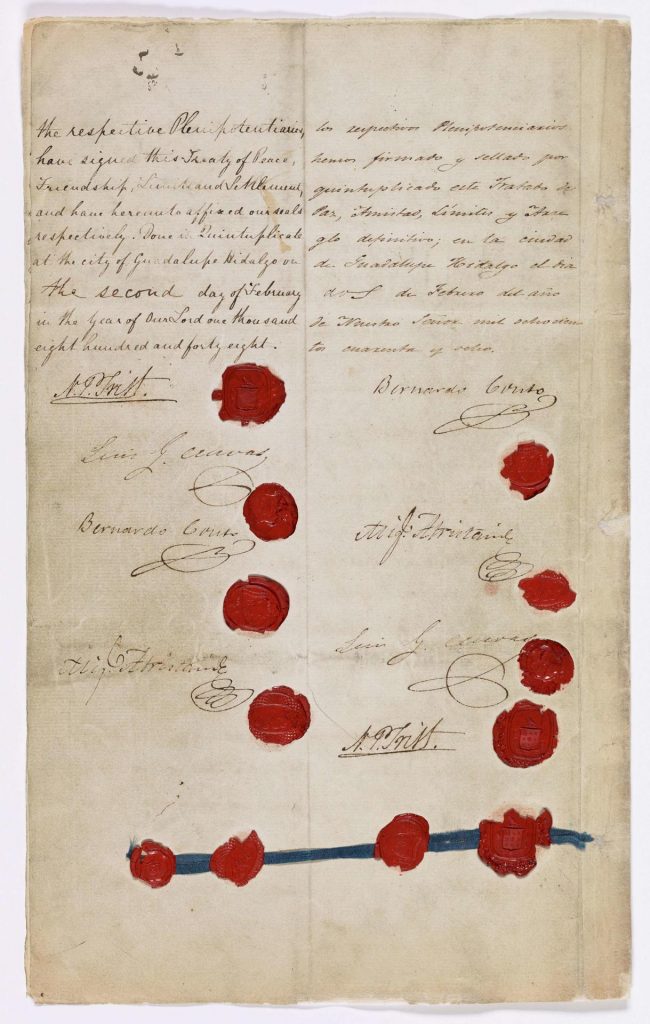 the respective Plenipotentiaries,
have signed this Treaty of Peace,
Friendship, Limits and Settlement,
and have hereunto affixed our seals
respectively. Done in Quintuplicate
at the city of Guadalupe Hidalgo on
the second day of February
in the Year of Our Lord one thousand
eight hundred and forty eight.
N. P. Trist.
Luis G. Cuevas
Bernardo Couto
Migl. Atristain
los respectivos Plenipotenciarios
hemos firmado y sellado por
quintuplicado este Tratado de
Paz, Amistad, Límites y Arre
glo definitivo; en la ciudad
de Guadalupe Hidalgo el dia
dos de Febrero del año
de Nuestro Señor mil ochocien
tos cuarenta y ocho.
Bernardo Couto
Migl. Atristain
Luis G. Cuevas
N. P. Trist.